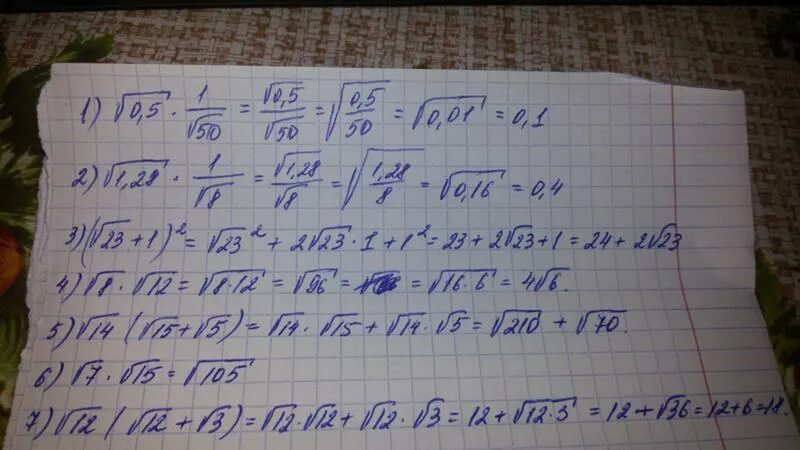 1) √0,5 · 1/√50 = √0,5/√50 = √(0,5/50) = √0,01 = 0,1
2) √1,28 · 1/√8 = √1,28/√8 = √(1,28/8) = √0,16 = 0,4
3) (√23+1)² = √23² + 2√23 · 1 + 1² = 23 + 2√23 + 1 = 24 + 2√23
4) √8 · √12 = √8·12 = √96 = = √16·6 = 4√6.
5) √14 (√15+√5) = √14 · √15 + √14 · √5 = √210 + √70.
6) √7 · √15 = √105
7) √12 (√12 + √3) = √12 · √12 + √12 · √3 = 12 + √12·3 = 12 + √36 = 12+6=18.